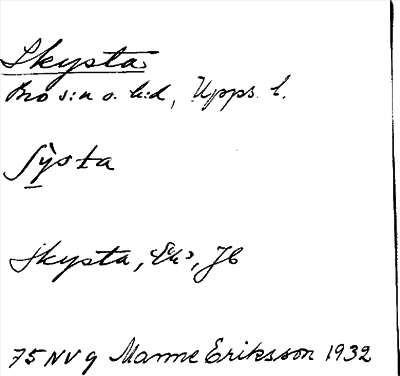 Skysta
Bro s:n o. h:d, Upps. l.
ʃỳ̲sta
Skysta, Ek, JC
75 NV g Manne Eriksson 1932